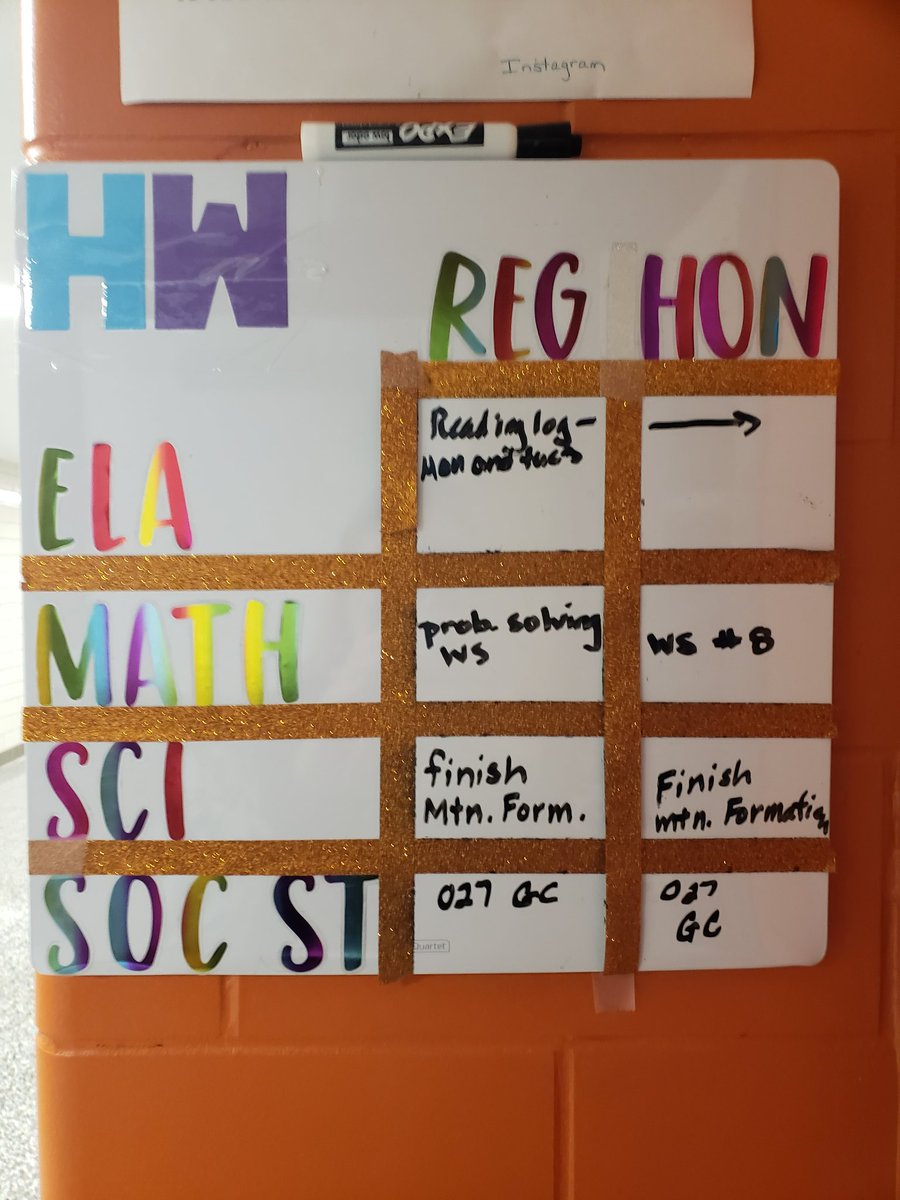 Instagram
EXPO
low odor
HW
REG HON
ELA
Reading log -
Mon and tues
→
MATH
prob solving
WS
WS # 8
SCI
finish
Mtn. Form.
Finish
mtn. Formation
SOC ST
027 GC
027
GC
Quartet